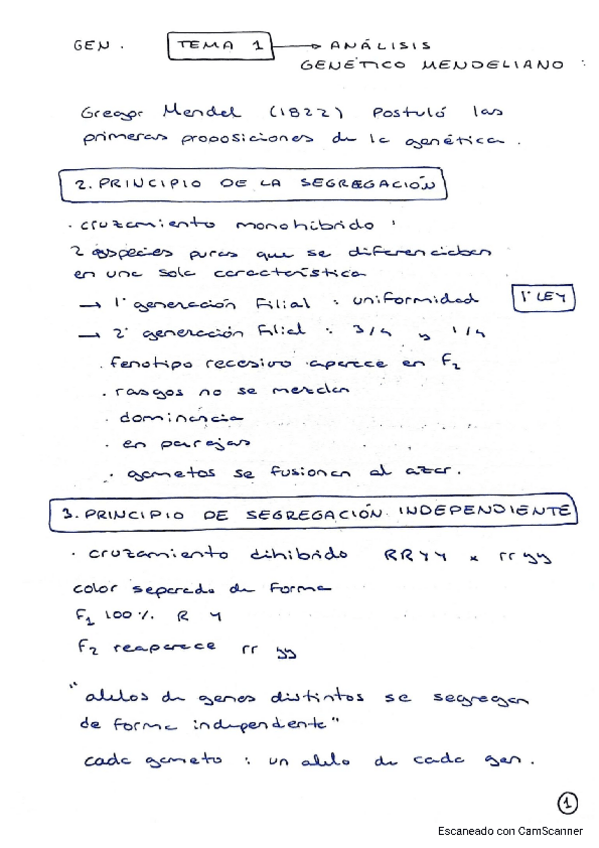 GEN. TEMA 1 → ANÁLISIS
GENÉTICO MENDELIANO:
Gregor Mendel (1822) Postuló las
primeras proposiciones de la genética.
2. PRINCIPIO DE LA SEGREGACIÓN
· cruzamiento monohíbrido
2 especies puras que se diferenciaban
en una sola característica
→ 1ª generación Filial : uniformidad 1ª LEY
→ 2ª generación Filial : 3/4 y 1/4
· fenotipo recesivo aparece en F2
· rasgos no se mezclan
· dominancia
· en parejas
· gametos se fusionan al azar.
3. PRINCIPIO DE SEGREGACIÓN INDEPENDIENTE
· cruzamiento dihíbrido RRYY x rryy
color separado de forma
F1 100% R Y
F2 reaparece rr yy
"alelos de genes distintos se segregan
de forma independente"
cada gameto : un alelo de cada gen.
1
Escaneado con CamScanner